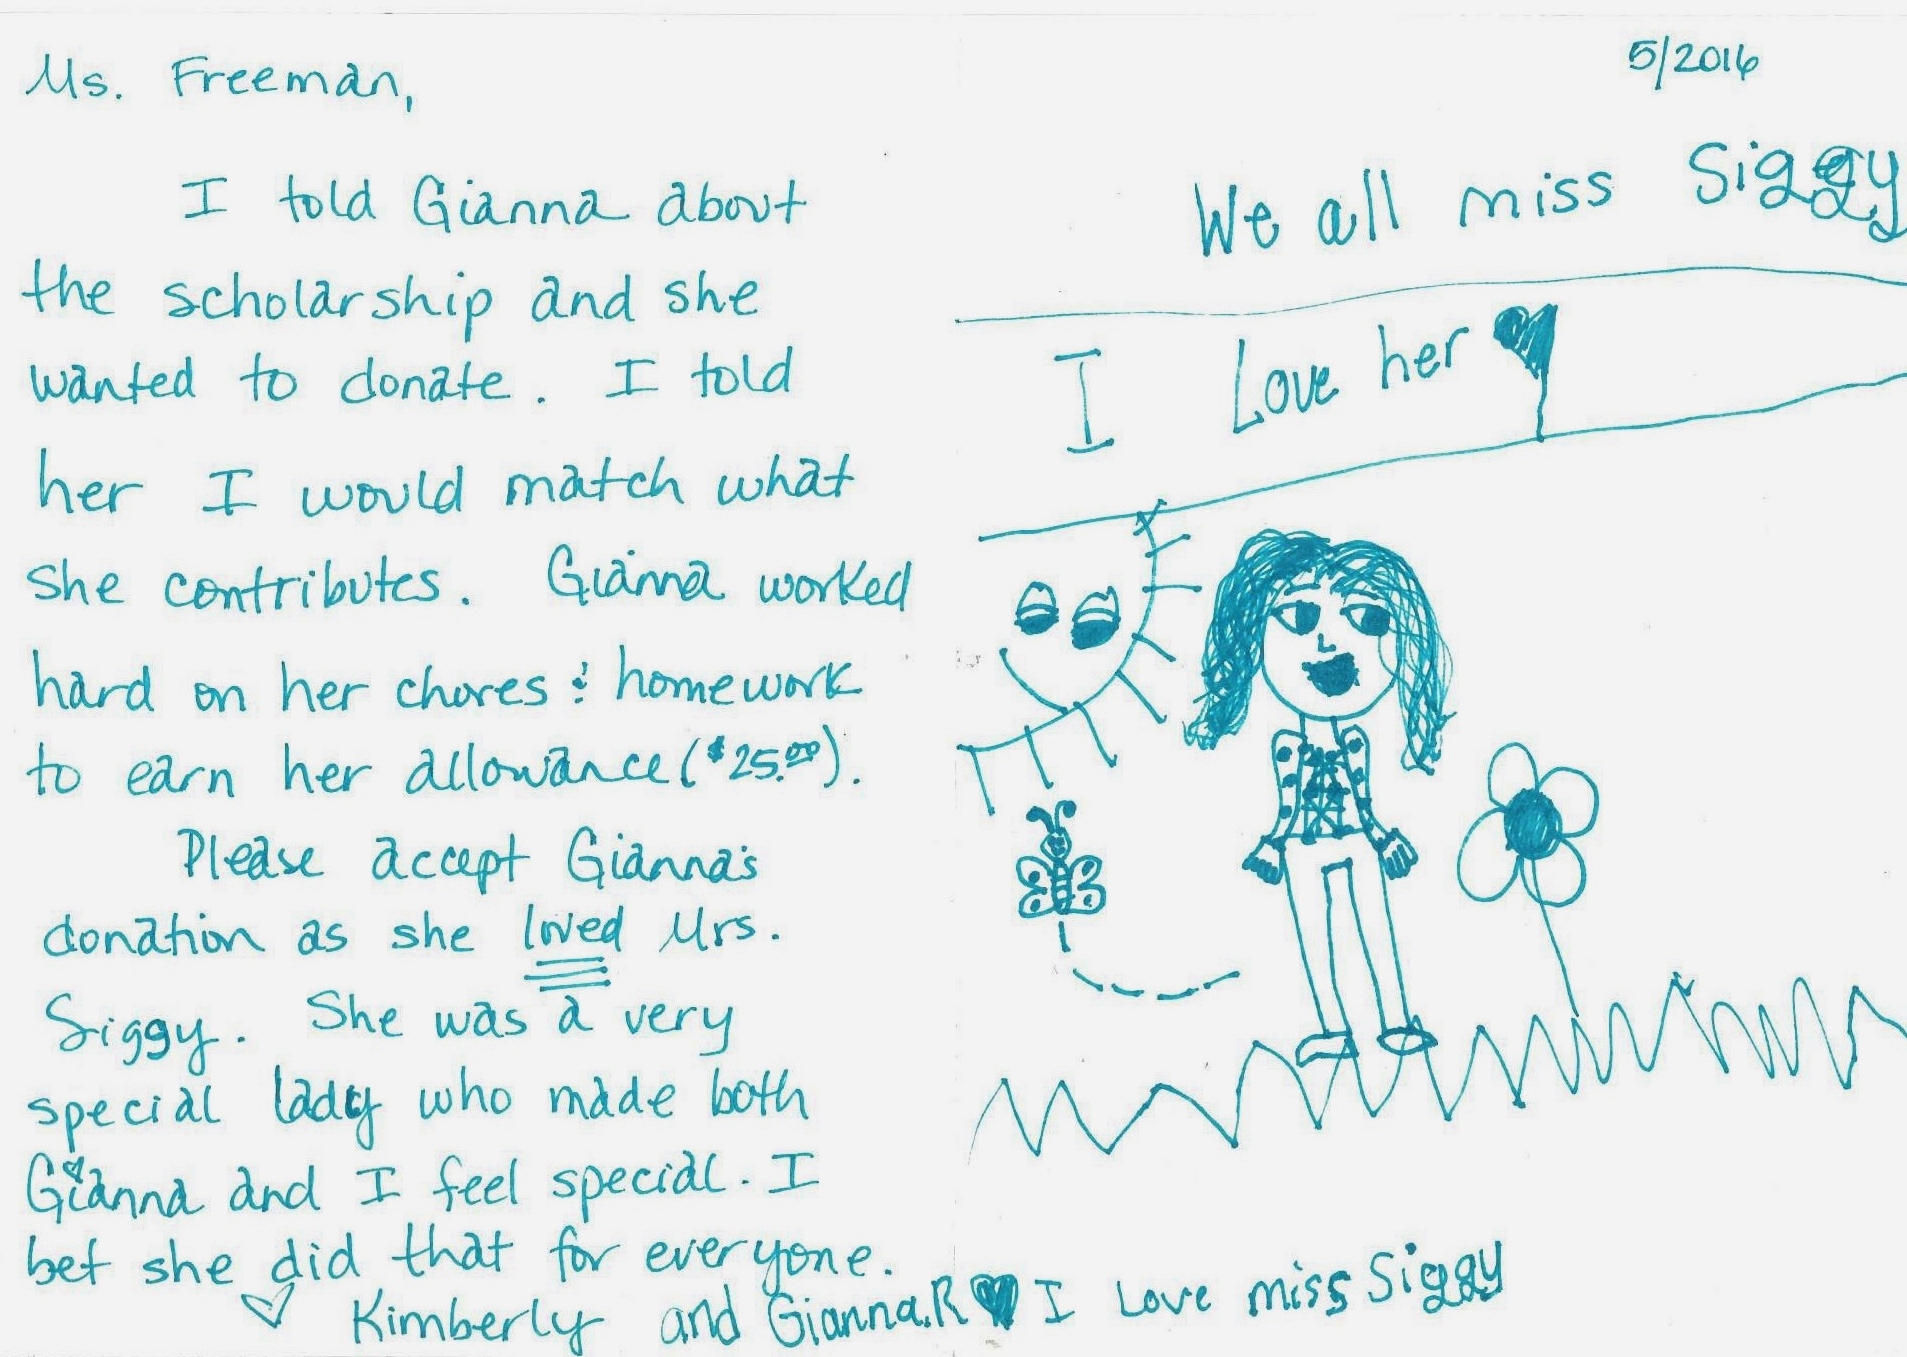 Ms. Freeman,
I told Gianna about
the scholarship and she
wanted to donate. I told
her I would match what
she contributes. Gianna worked
hard on her chores & homework
to earn her allowance ($25.00).
Please accept Gianna's
donation as she loved Mrs.
Siggy. She was a very
special lady who made both
Gianna and I feel special. I
bet she did that for everyone.
Kimberly and Gianna.R
5/2016
We all miss Siggy
I Love her
I Love miss Siggy